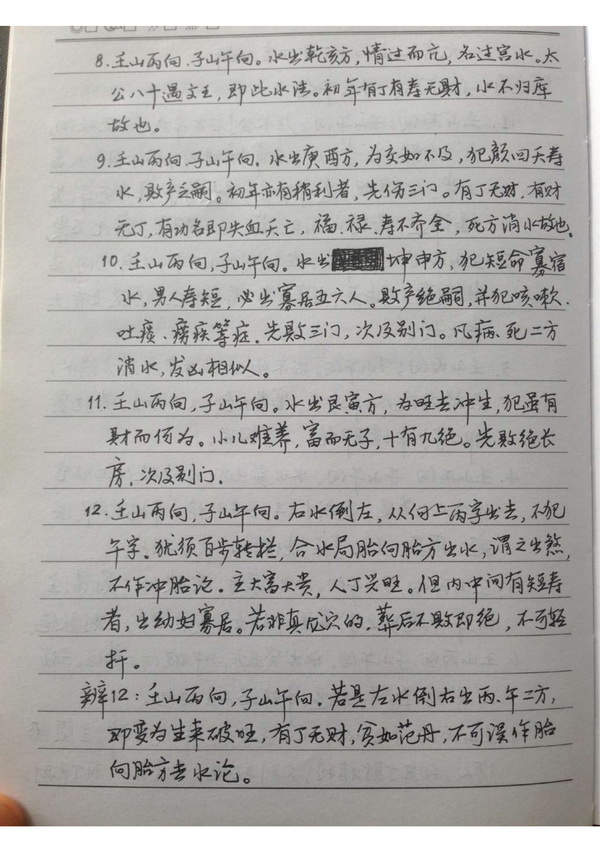 8.壬山丙向,子山午向。水出乾亥方,情过而亢,名过宫水。太
公八十遇文王,即此水法。初年有丁有寿无财,水不归库
故也。
9.壬山丙向,子山午向.水出庚酉方,为交如不及,犯颜回夭寿
水,败产乏嗣。初年亦有稍利者,先伤三门。有丁无财,有财
无丁,有功名即失血夭亡,福.禄.寿不齐全,死方消水故也.
10.壬山丙向,子山午向。水出坤申方,犯短命寡宿
水,男人寿短,必出寡居五六人。败产绝嗣,并犯咳嗽.
吐痰、痨疾等症.先败三门,次及别门。凡病、死二方
消水,发凶相似。
11.壬山丙向,子山午向。水出艮寅方,为旺去冲生,犯虽有
财而何为。小儿难养,富而无子,十有九绝。先败绝长
房,次及别门.
12.壬山丙向,子山午向。右水倒左,从向上丙字出去,不犯
午字.犹须百步转栏,合水局胎向胎方出水,谓之出煞,
不作冲胎论.主大富大贵,人丁兴旺。但内中间有短寿
者,出幼妇寡居。若非真龙穴的.葬后不败即绝,不可轻
扦。
辩12:壬山丙向,子山午向.若是左水倒右出丙、午二方,
即变为生来破旺,有丁无财,贫如范丹,不可误作胎
向胎方去水论。